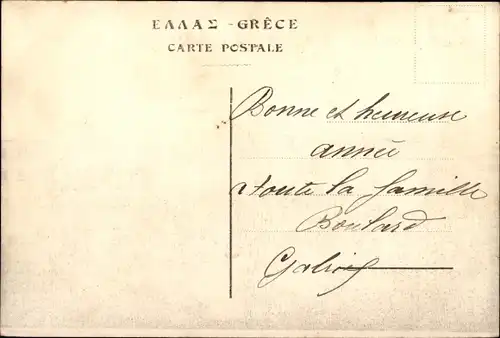 ΕΛΛΑΣ - GRÈCE
CARTE POSTALE
Bonne et heureuse
année
Toute la famille
Boulard